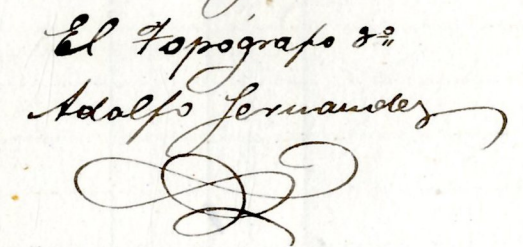 El Topógrafo 3º
Adolfo Fernandez